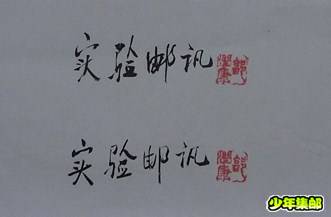 实验邮讯
实验邮讯
少年集邮